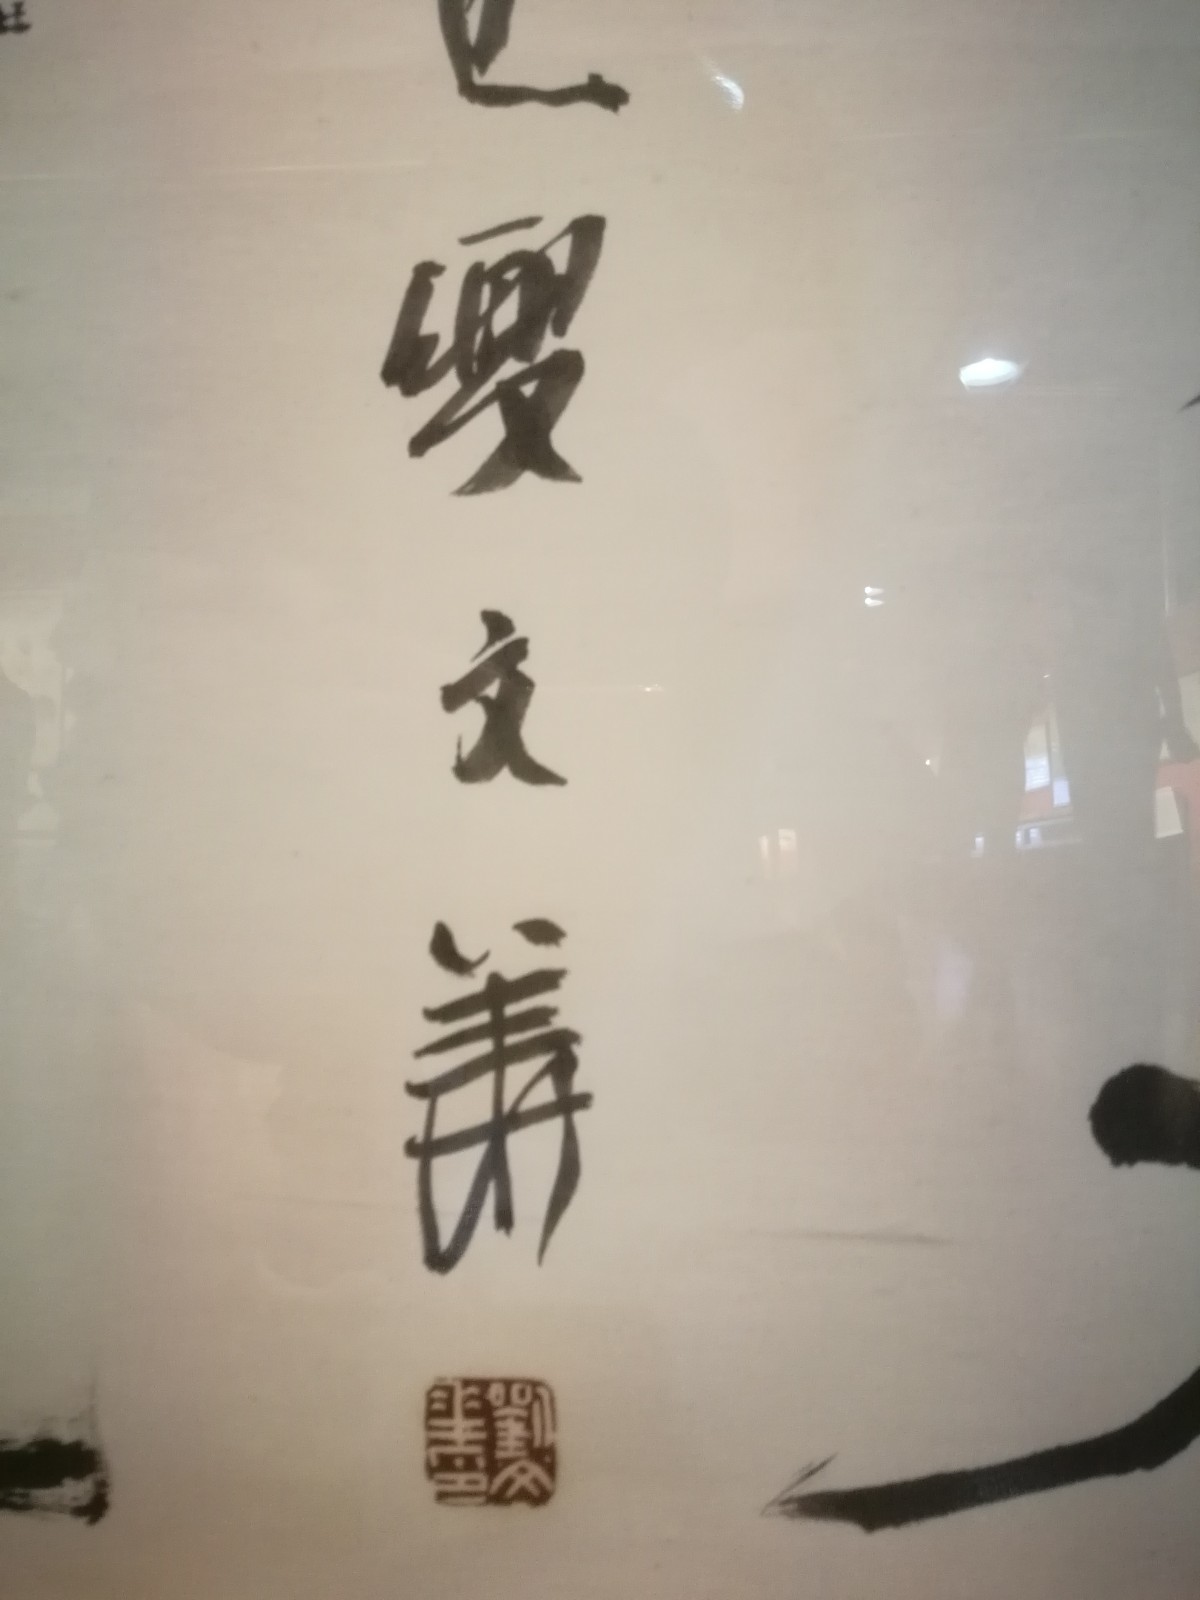 劉文華
劉文華印